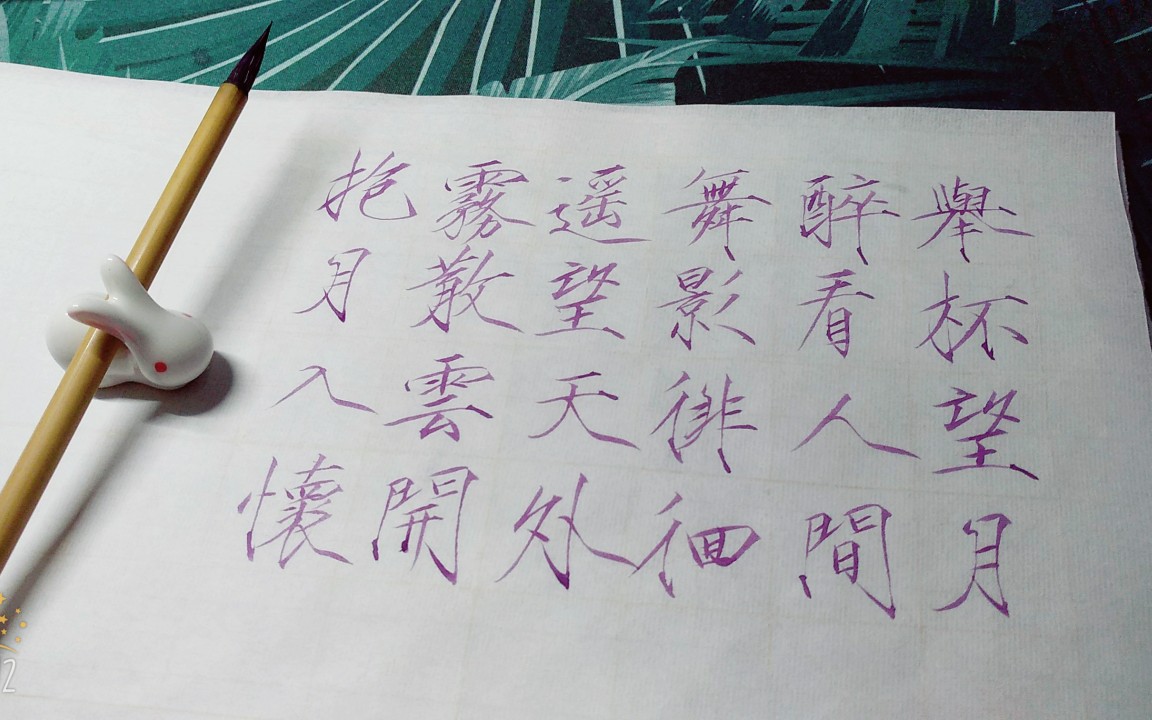 舉杯望月
醉看人間
舞影徘徊
遥望天外
霧散雲開
抱月入懷
2